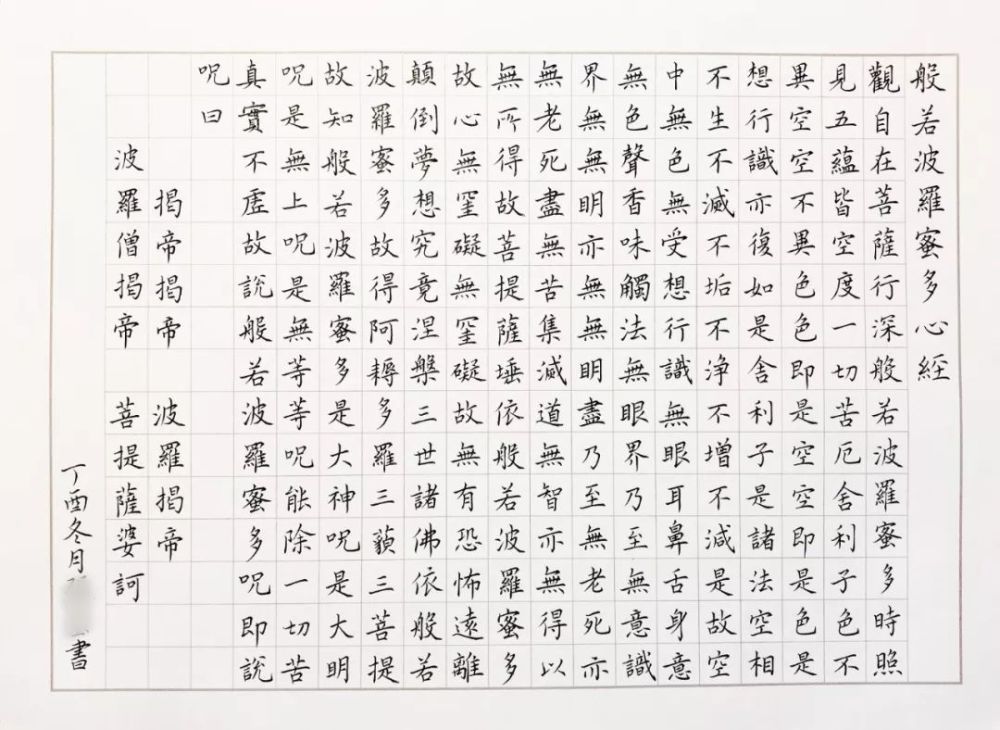 般若波羅蜜多心経
觀自在菩薩行深般若波羅蜜多時照
見五蘊皆空度一切苦厄舍利子色不
異空空不異色色即是空空即是色是
想行識亦復如是舍利子是諸法空相
不生不滅不垢不浄不增不減是故空
中無色無受想行識無眼耳鼻舌身意
無色聲香味觸法無眼界乃至無意識
界無無明亦無無明盡乃至無老死亦
無老死盡無苦集滅道無智亦無得以
無所得故菩提薩埵依般若波羅蜜多
故心無罣礙無罣礙故無有恐怖遠離
顛倒夢想究竟涅槃三世諸佛依般若
波羅蜜多故得阿耨多羅三藐三菩提
故知般若波羅蜜多是大神呪是大明
呪是無上呪是無等等呪能除一切苦
真實不虛故說般若波羅蜜多呪即說
呪曰
揭帝揭帝 波羅揭帝
波羅僧揭帝 菩提薩婆訶
丁酉冬月 書